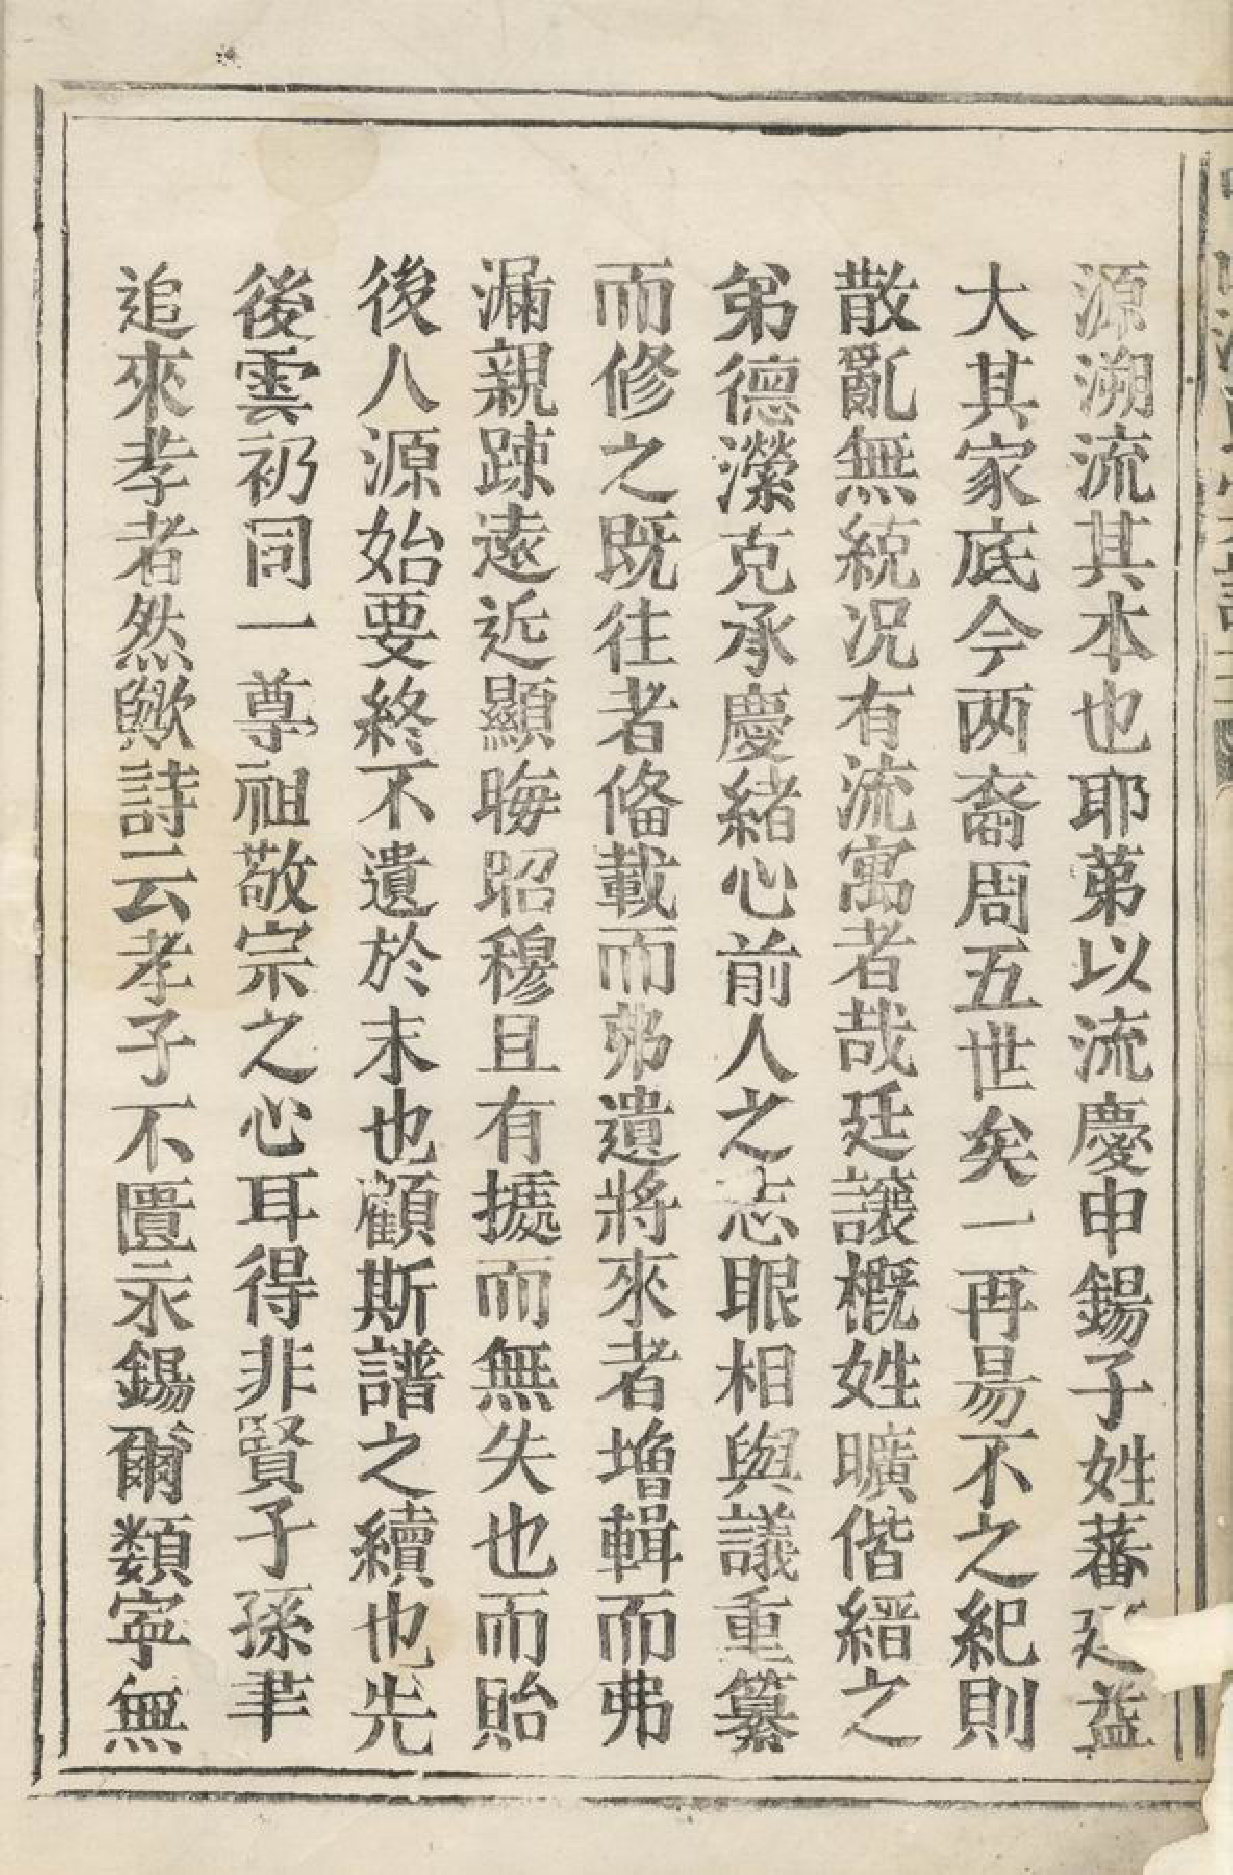 源溯流其本也耶苐以流慶申錫子姓蕃延益
大其家底今两裔周五世矣一再昜不之紀則
散亂無統况有流寓者哉廷讓概姓曠偕縉之
弟德瀠克承慶緒心前人之志眼相與議重纂
而修之既往者俻載而弗遺將來者增輯而弗
漏親踈遠近顯晦昭穆且有據而無失也而貽
後人源始要終不遺於末也顧斯譜之續也先
後雲礽同一尊祖敬宗之心耳得非賢子孫聿
追來孝者然歟詩云孝子不匱永錫爾類寧無